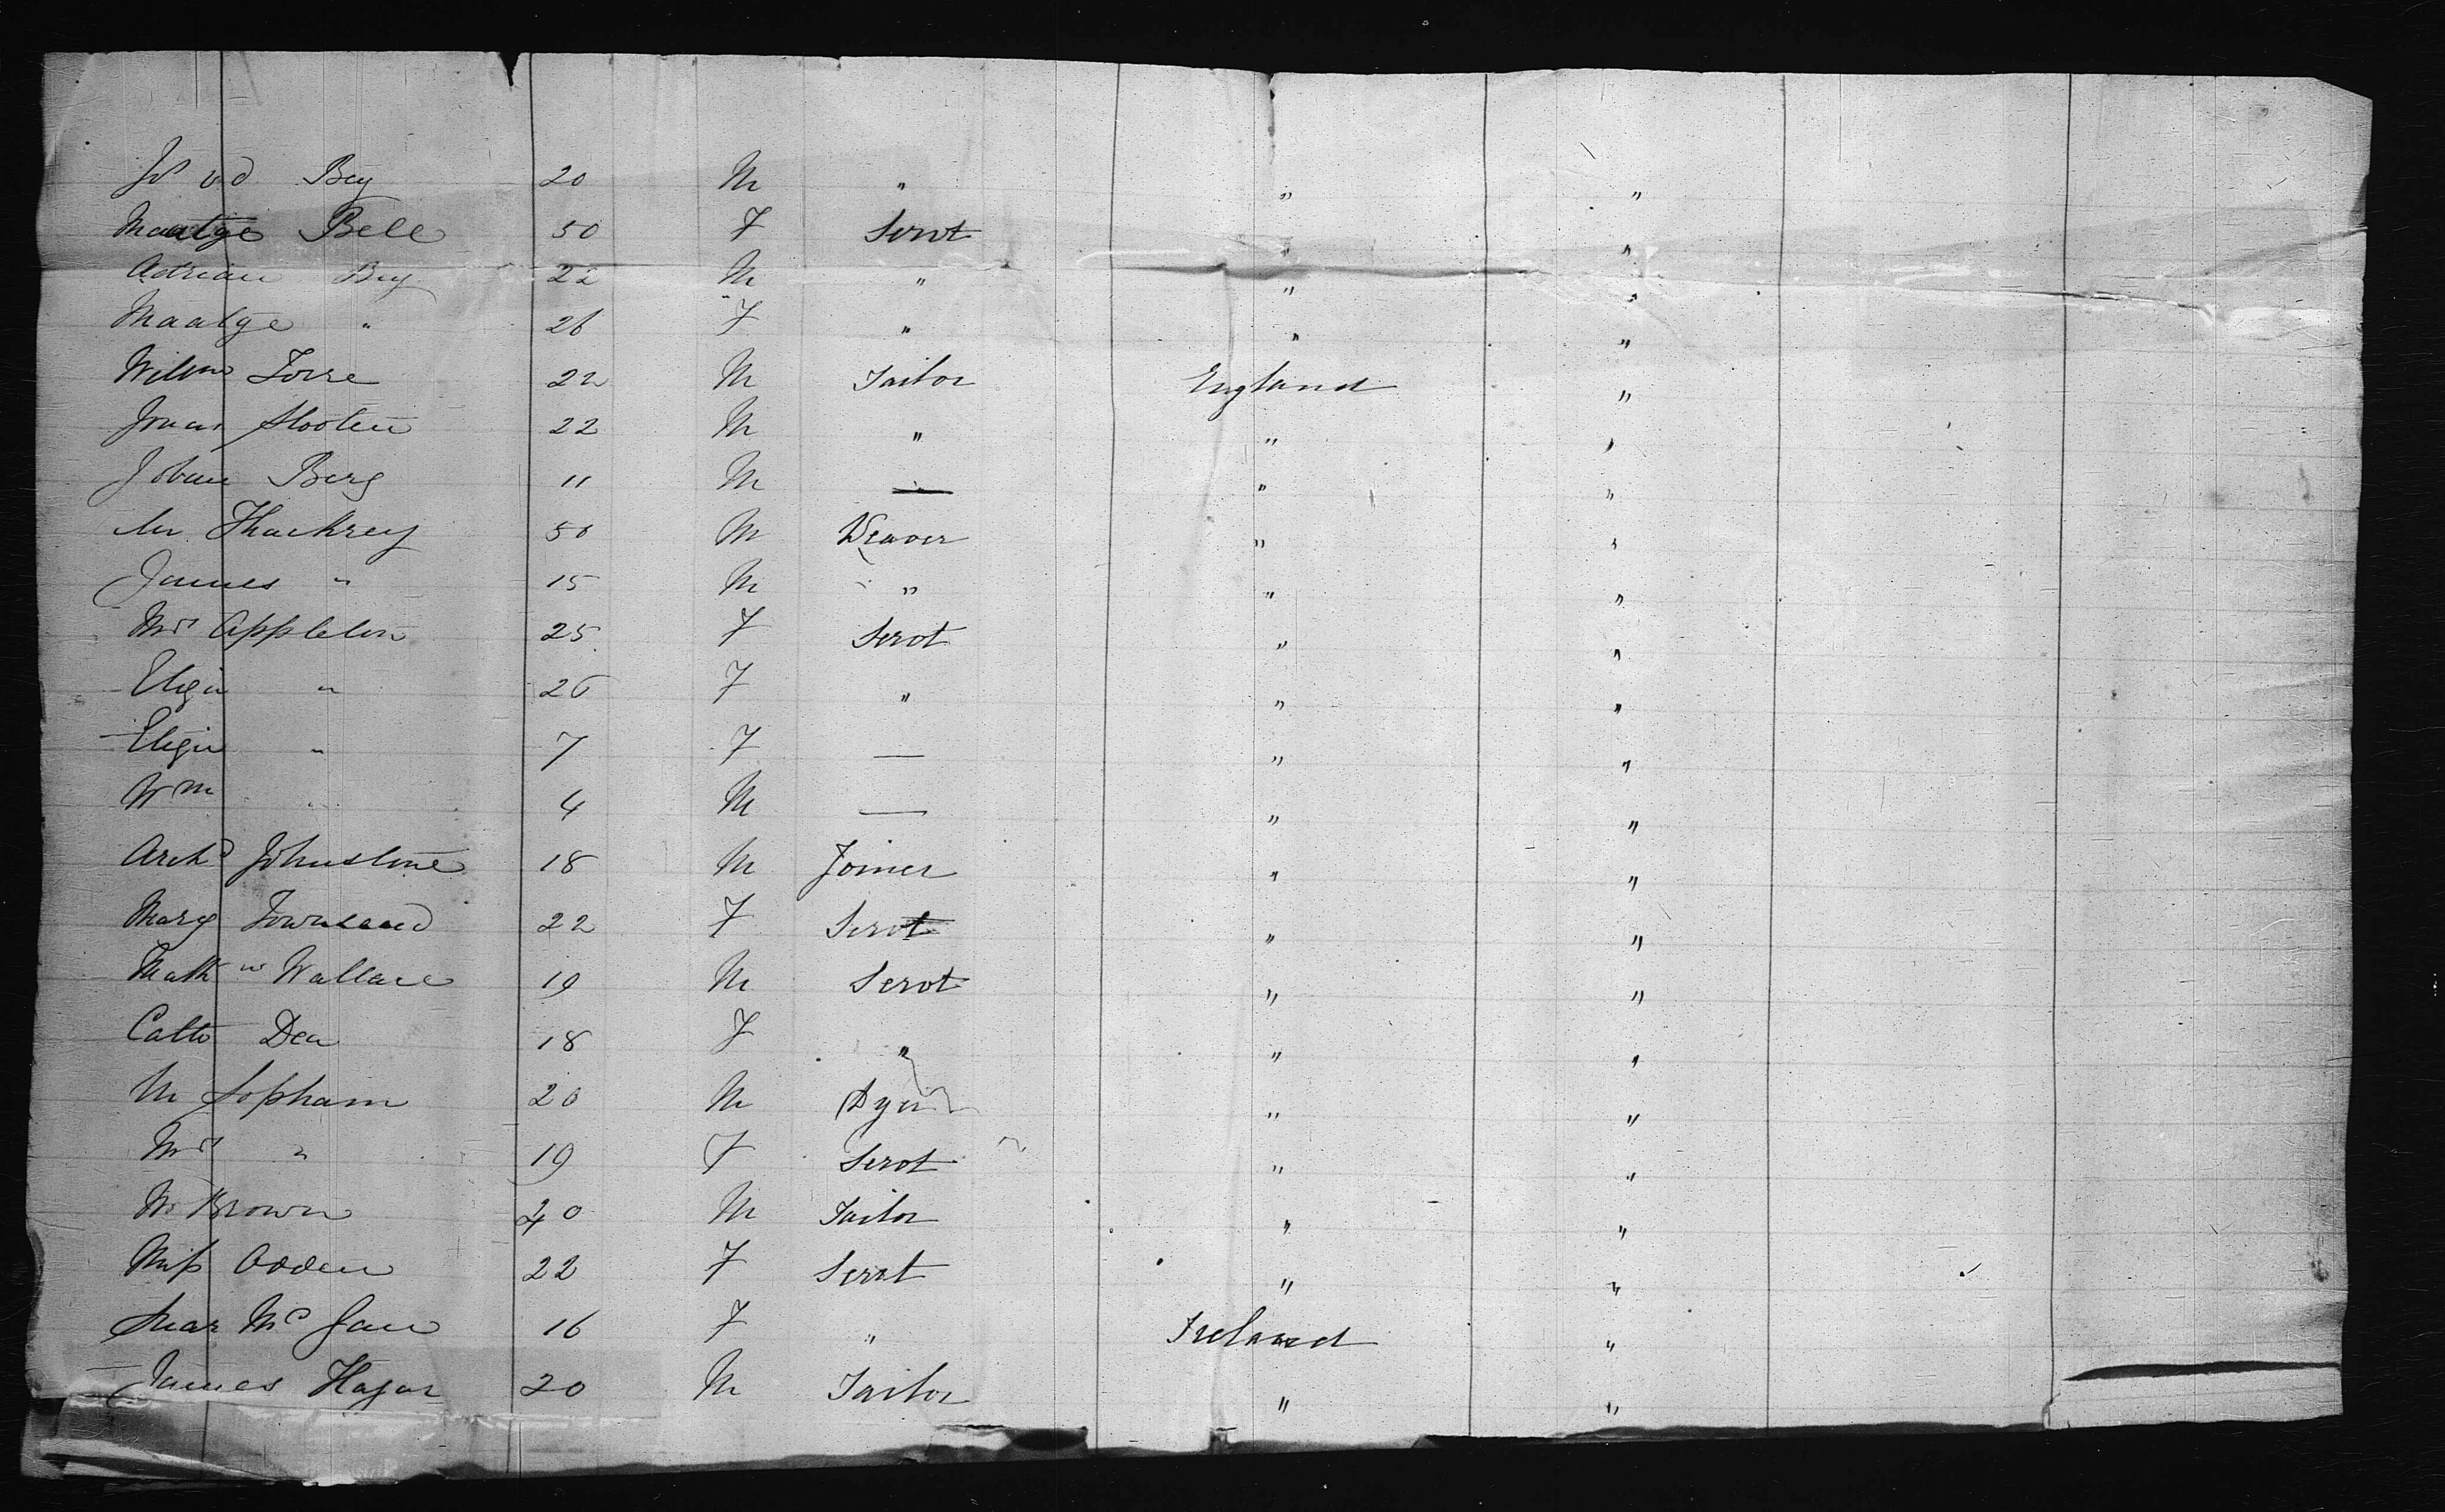 W vd Bey 20 M " " "
Maatge Bele 50 F Servt " "
Adrian Bey 22 M " " "
Maatge " 26 F " " "
Willm Torre 22 M Tailor England "
Slooten 22 M " " "
Johan Berg 11 M — " "
Mr Thackrey 50 M Weaver " "
James " 15 M " " "
Mrs Appleton 25 F Servt " "
Eliza " 26 F " " "
Eliza " 7 F — " "
Wm " 4 M — " "
Archd Johnstone 18 M Joiner " "
Mary Townsend 22 F Servt " "
Mathw Wallace 19 M Servt " "
Cath Dea 18 F " " "
M Sopham 20 M Dyer " "
Mrs " 19 F Servt " "
W Brown 20 M Tailor " "
Miss Odden 22 F Servt " "
Mar Mc Gau 16 F " Ireland "
James Hagar 20 M Tailor " "